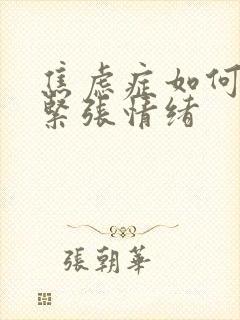 焦虑症如何
緊張情绪
張朝華